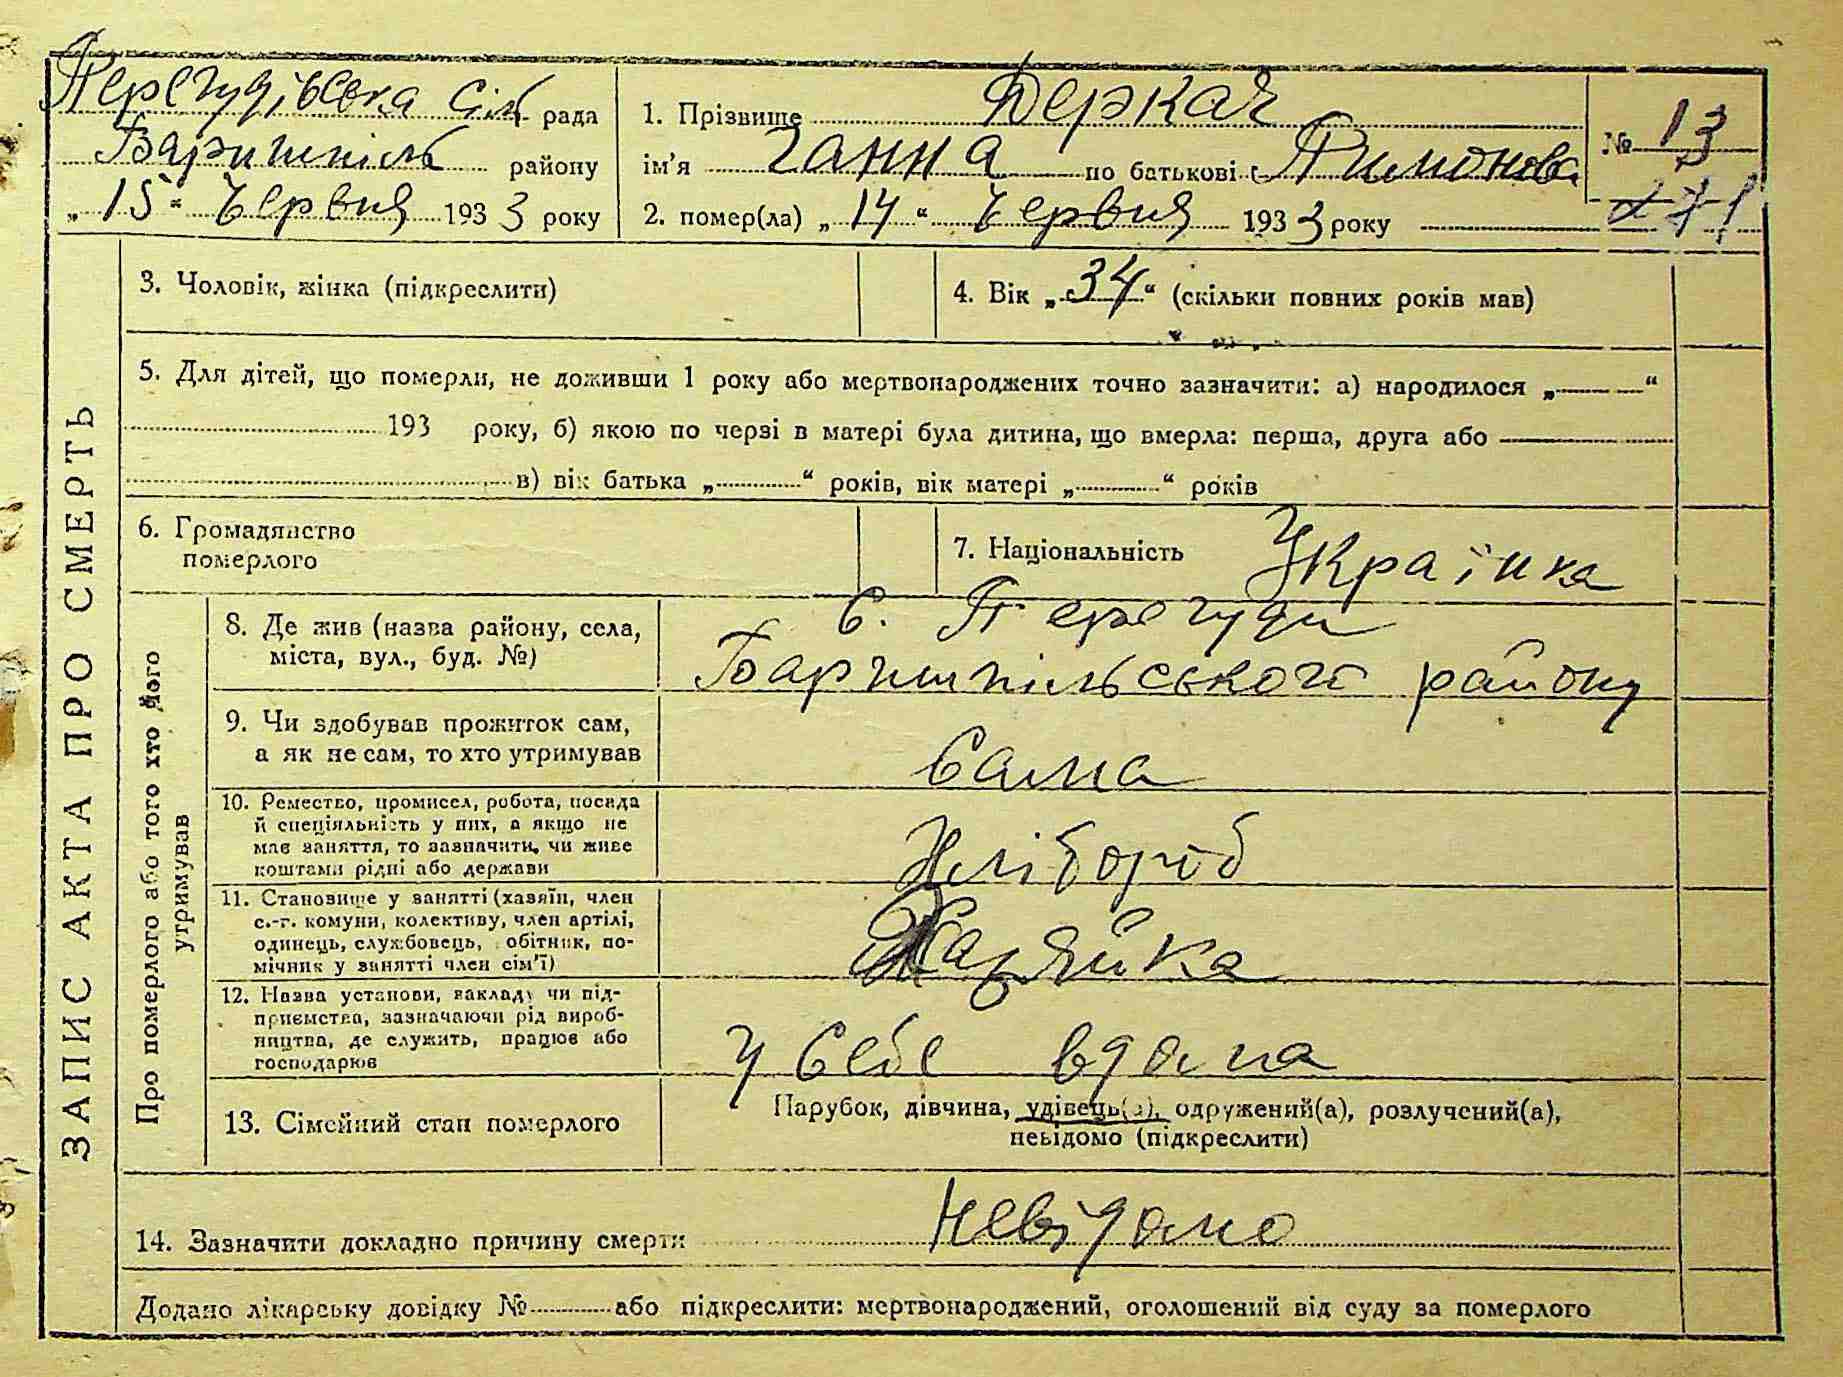 Перегудівська сіл. рада
Баришпіль району
„ 15 “ Червня 193 3 року
1. Прізвище Деркач
ім'я Ганна по батькові Тимонова
2. помер(ла) „ 14 “ Червня 193 3 року
№ 13
271
ЗАПИС АКТА ПРО СМЕРТЬ
3. Чоловік, жінка (підкреслити)
4. Вік „ 34 “ (скільки повних років мав)
5. Для дітей, що померли, не доживши 1 року або мертвонароджених точно зазначити: а) народилося „ — “
193 року, б) якою по черзі в матері була дитина, що вмерла: перша, друга або
в) вік батька „ “ років, вік матері „ “ років
6. Громадянство
померлого
7. Національність Українка
Про померлого або того хто його
утримував
8. Де жив (назва району, села,
міста, вул., буд. №)
С. Перегуди
Баришпільського району
9. Чи здобував прожиток сам,
а як не сам, то хто утримував
Сама
10. Ремество, промисел, робота, посада
й спеціяльність у них, а якщо не
має заняття, то зазначити, чи живе
коштами рідні або держави
Хлібороб
11. Становище у занятті (хазяїн, член
с.-г. комуни, колективу, член артілі,
одинець, службовець, робітник, по-
мічник у занятті член сім'ї)
Хазяйка
12. Назва установи, закладу чи під-
приємства, зазначаючи рід вироб-
ництва, де служить, працює або
господарює
у себе вдома
13. Сімейний стан померлого
Парубок, дівчина, удівець(а), одружений(а), розлучений(а),
невідомо (підкреслити)
14. Зазначити докладно причину смерти Невідомо
Додано лікарську довідку № або підкреслити: мертвонароджений, оголошений від суду за померлого